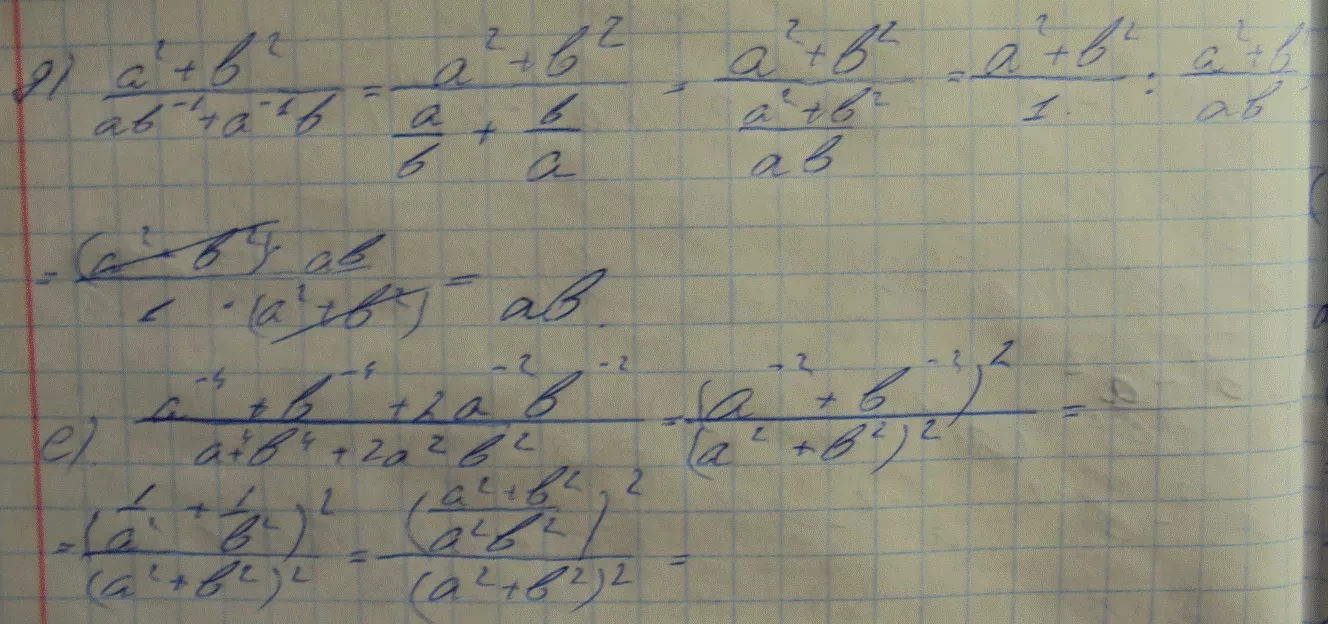 д) (a² + b²)/(ab⁻¹ + a⁻¹b) = (a² + b²)/(a/b + b/a) = (a² + b²)/((a² + b²)/(ab)) = (a² + b²)/1 : (a² + b)/(ab)
= ((a² + b²) · ab)/(1 · (a² + b²)) = ab.
е) (a⁻⁴ + b⁻⁴ + 2a⁻²b⁻²)/(a⁴ + b⁴ + 2a²b²) = (a⁻² + b⁻²)²/(a² + b²)² =
= (1/a² + 1/b²)²/(a² + b²)² = ((a² + b²)/(a²b²))²/(a² + b²)² =